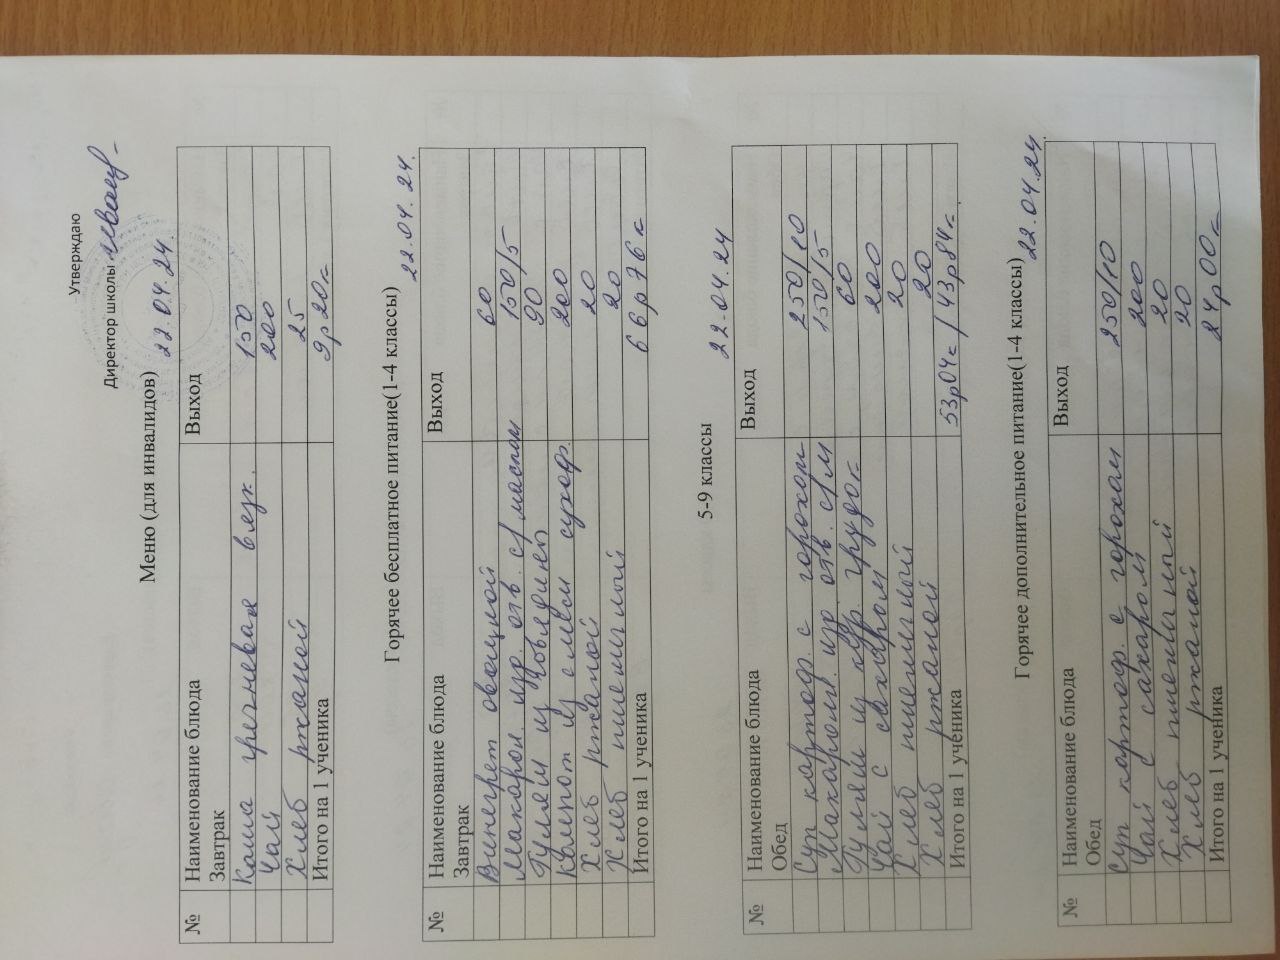 Утверждаю
Директор школы
Меню (для инвалидов) 22.04.24
№ Наименование блюда Выход
Завтрак
Каша гречневая вязк. 150
Чай 200
Хлеб ржаной 25
Итого на 1 ученика 9р20к
Горячее бесплатное питание(1-4 классы)
22.04.24.
№ Наименование блюда Выход
Завтрак
Винегрет овощной 60
Макарон. изд. отв. с/маслом 150/5
Гуляш из говядины 90
Компот из смеси сухоф. 200
Хлеб ржаной 20
Хлеб пшеничный 20
Итого на 1 ученика 66р76к
5-9 классы 22.04.24
№ Наименование блюда Выход
Обед
Суп картоф. с горохом 250/10
Макарон. изд. отв. с/м 150/5
Гуляш из кур. грудок 60
Чай с сахаром 200
Хлеб пшеничный 20
Хлеб ржаной 20
Итого на 1 ученика 53р04к / 43р84к
Горячее дополнительное питание(1-4 классы) 22.04.24.
№ Наименование блюда Выход
Обед
Суп картоф. с горохом 250/10
Чай с сахаром 200
Хлеб пшеничный 20
Хлеб ржаной 20
Итого на 1 ученика 24р00к